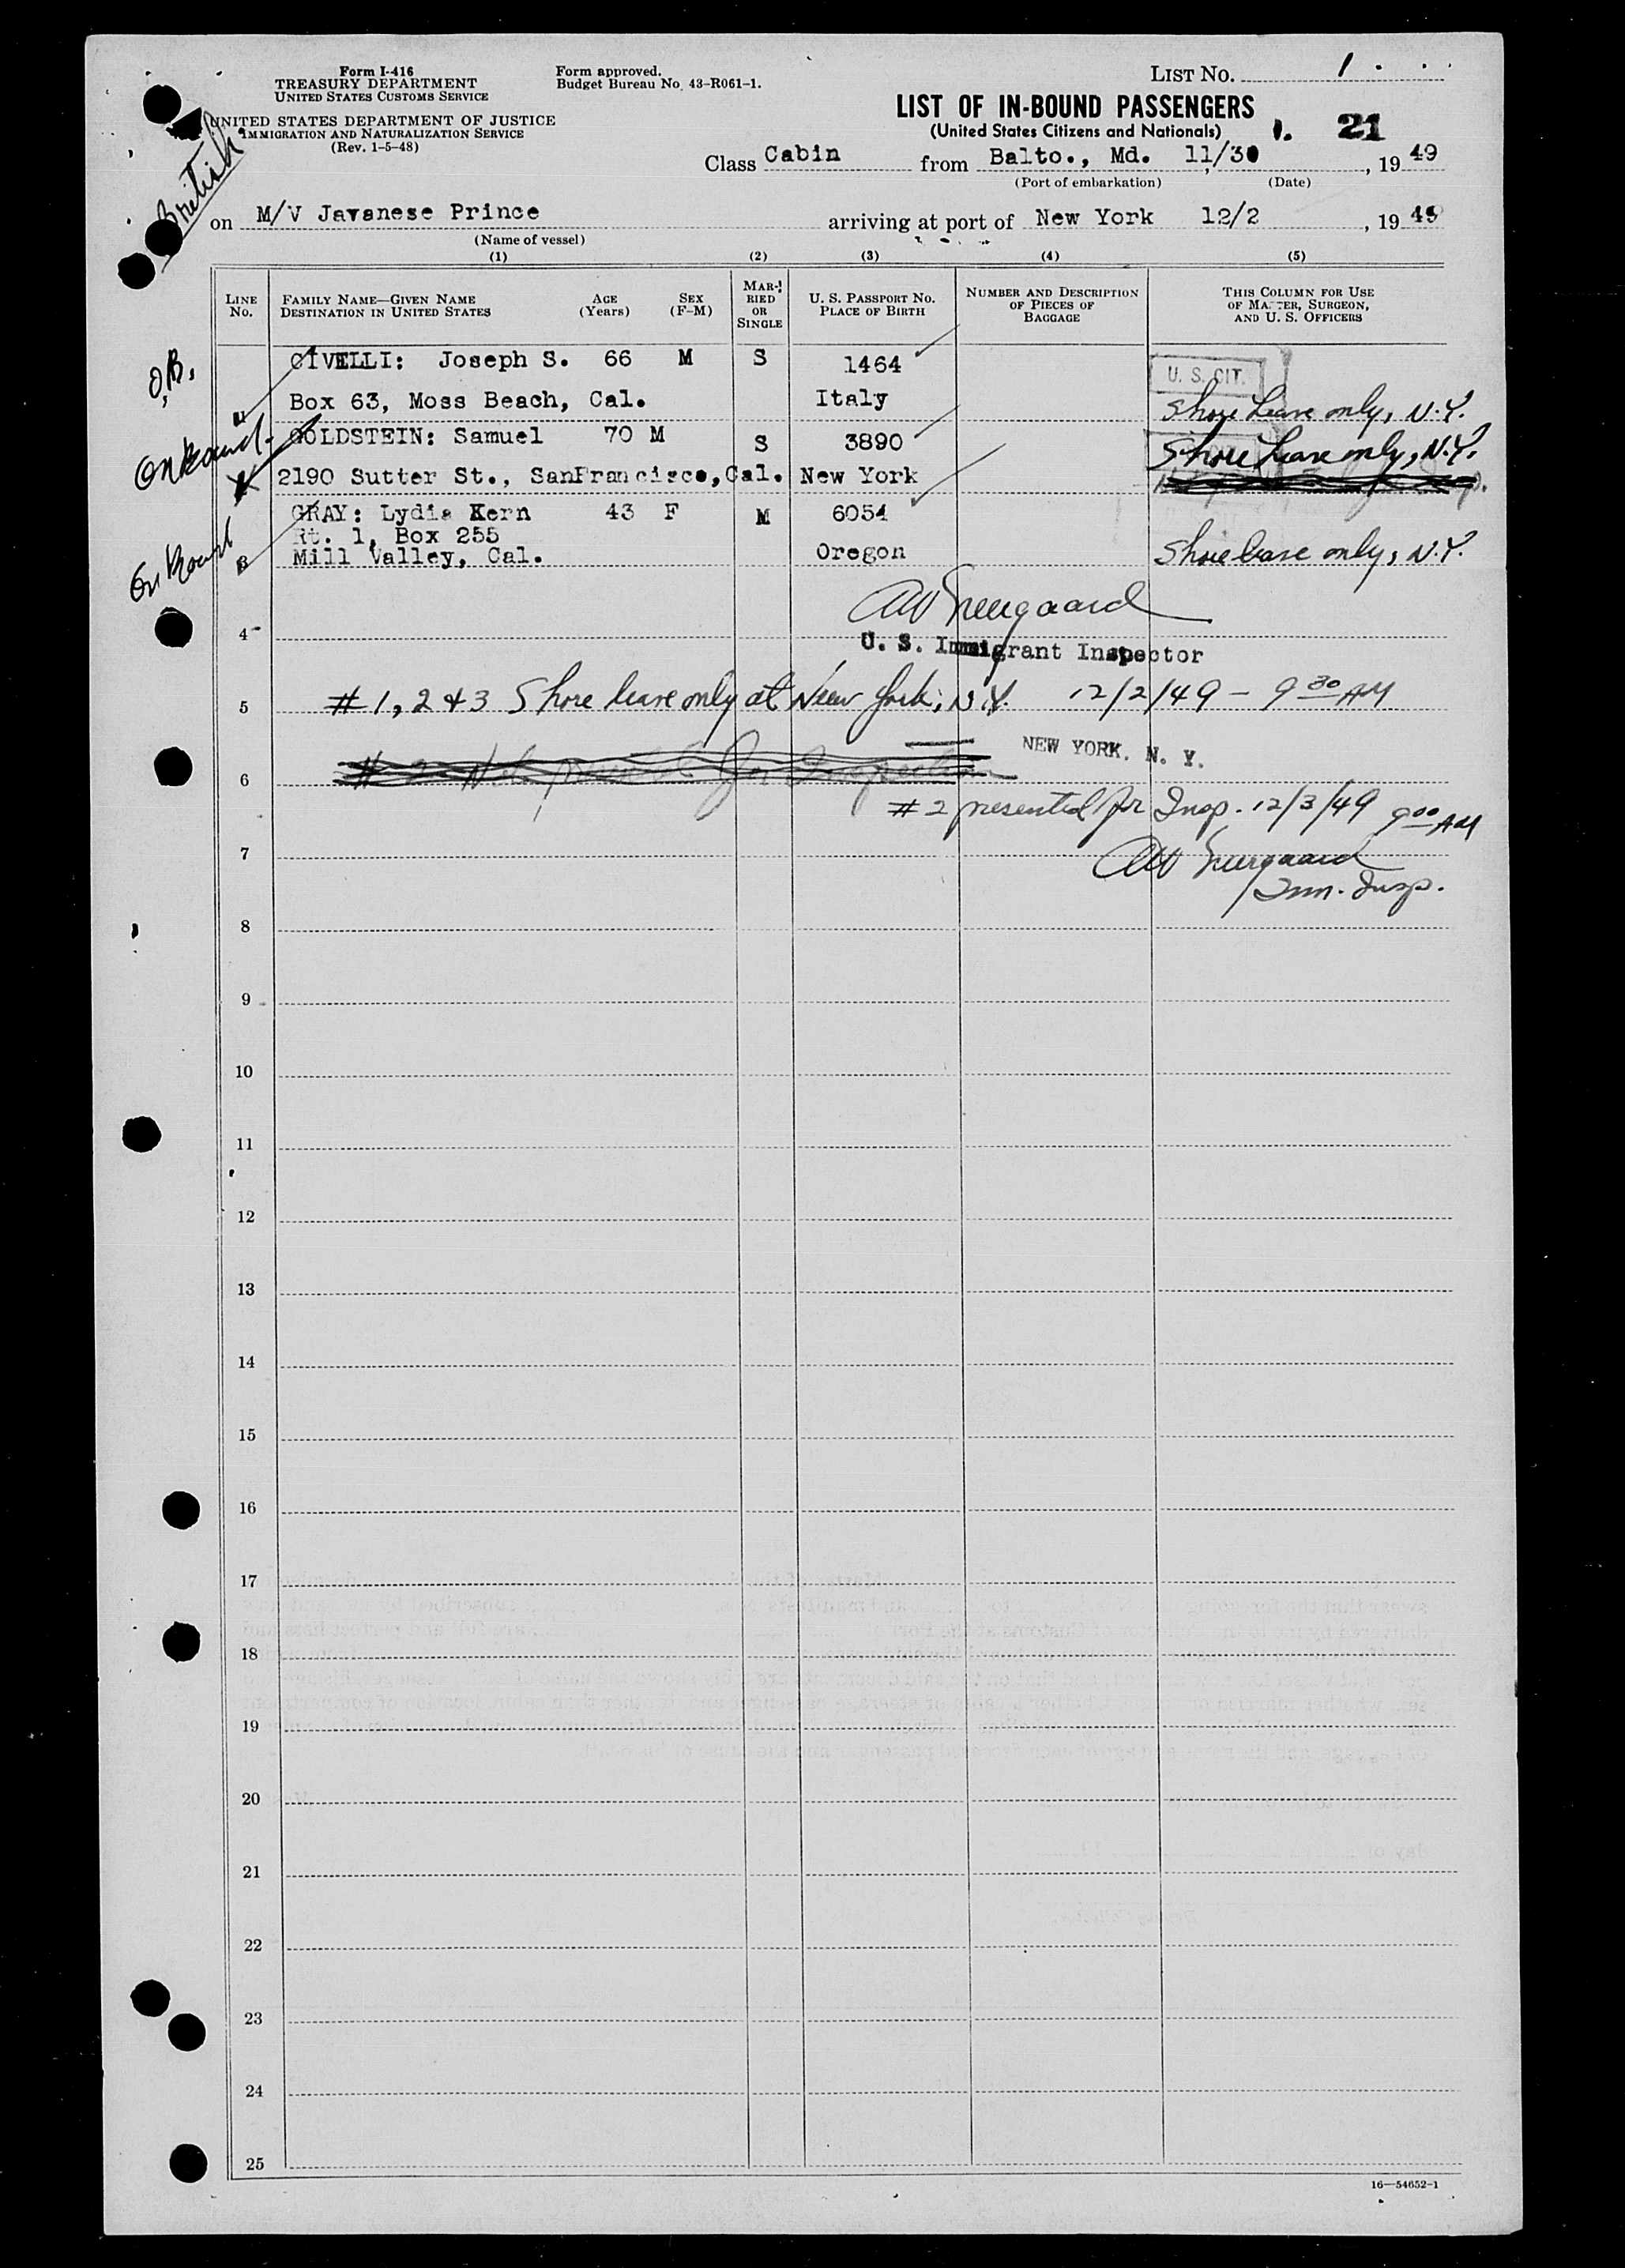 Form I-416
TREASURY DEPARTMENT
UNITED STATES CUSTOMS SERVICE
UNITED STATES DEPARTMENT OF JUSTICE
IMMIGRATION AND NATURALIZATION SERVICE
(Rev. 1-5-48)
Form approved.
Budget Bureau No. 43-R061-1.
LIST NO. 1
LIST OF IN-BOUND PASSENGERS
(United States Citizens and Nationals)
1. 21
British
Class Cabin from Balto., Md. 11/30, 19 49
(Port of embarkation) (Date)
on M/V Javanese Prince arriving at port of New York 12/2, 19 49
(Name of vessel)
(1) (2) (3) (4) (5)
LINE No.
FAMILY NAME—GIVEN NAME
DESTINATION IN UNITED STATES
AGE
(Years)
SEX
(F-M)
MARRIED OR SINGLE
U. S. PASSPORT NO.
PLACE OF BIRTH
NUMBER AND DESCRIPTION OF PIECES OF BAGGAGE
THIS COLUMN FOR USE OF MASTER, SURGEON, AND U. S. OFFICERS
O.B.
CIVELLI: Joseph S. 66 M S 1464
U. S. CIT.
Box 63, Moss Beach, Cal. Italy Shore Leave only, N.Y.
On Board
GOLDSTEIN: Samuel 70 M S 3890 Shore Leave only, N.Y.
2190 Sutter St., SanFrancisco, Cal. New York
On Board
GRAY: Lydia Kern 43 F M 6054
Rt. 1, Box 255
Mill Valley, Cal. Oregon Shore leave only, N.Y.
4
U. S. Immigrant Inspector
5 # 1, 2 & 3 Shore leave only at New York, N.Y. 12/2/49 - 9 30 AM
NEW YORK, N. Y.
6
# 2 presented for Insp. 12/3/49 9 00 AM
7
Imm. Insp.
8
9
10
11
12
13
14
15
16
17
18
19
20
21
22
23
24
25
16—54652-1